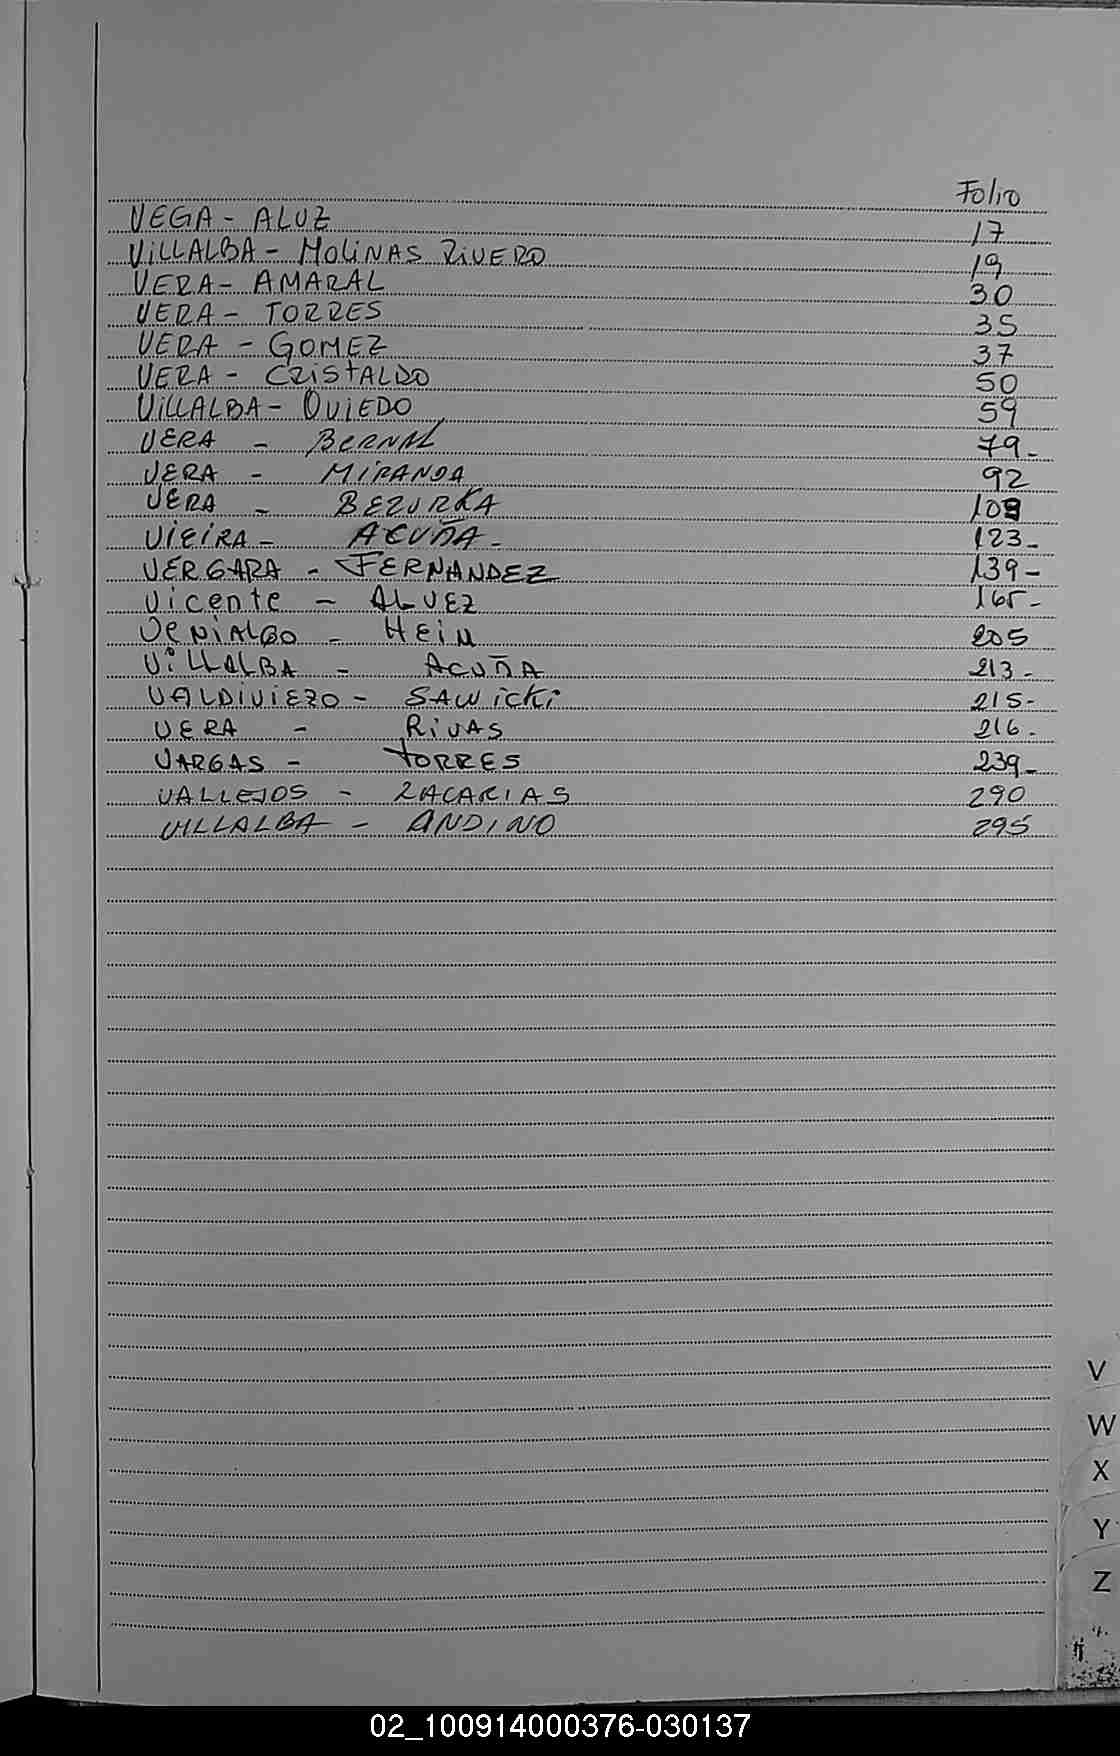 Folio
VEGA - ALUZ 17
VILLALBA - MOLINAS RIVERO 19
VERA - AMARAL 30
VERA - TORRES 35
VERA - GOMEZ 37
VERA - CRISTALDO 50
VILLALBA - OVIEDO 59
VERA - BERNAL 79-
VERA - MIRANDA 92
VERA - BEZURKA 109
VIEIRA - ACUÑA - 123-
VERGARA - FERNANDEZ 139-
Vicente - ALVEZ 165-
VENIALGO - HEIN 205
VILLALBA - ACUÑA 213-
VALDIVIEZO - SAWICKI 215-
VERA - RIVAS 216-
VARGAS - TORRES 239-
VALLEJOS - ZACARIAS 290
VILLALBA - ANDINO 295
V
W
X
Y
Z
02_100914000376-030137